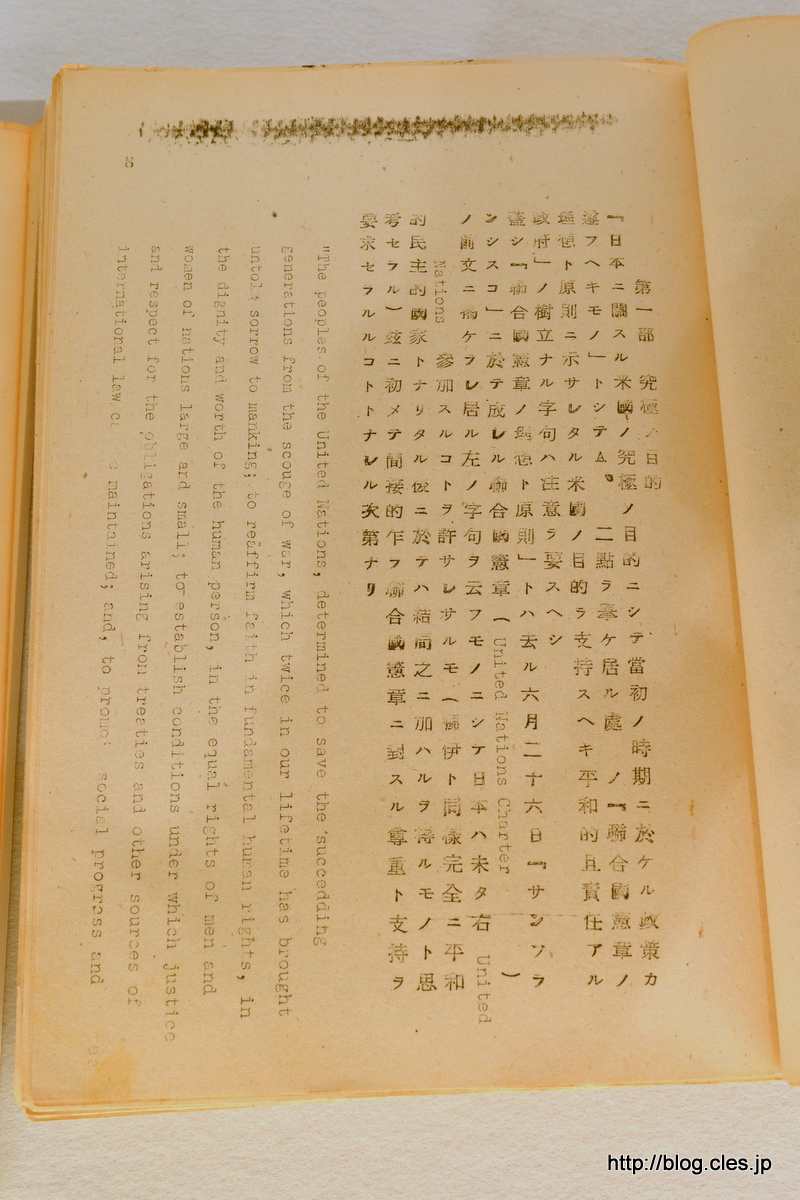 第一部 究極ノ目的
「日本ニ關スル米國ノ究極ノ目的ニシテ當初ノ時期ニ於ケル政策カ
遵フヘキモノ」トシテ 二點ヲ擧ケ居ル處ノ「聯合國憲章ノ
理想ト原則ニ示サレタル米國ノ目的ヲ支持スヘキ平和的且責任アル
政府」ノ樹立ナル字句ハ注意ヲ要スヘシ
蓋シ「聯合國憲章ノ理想ト原則」トハ去ル六月二十六日「サンフラ
ンシスコ」ニ於テ成レル聯合國憲章(United Nations Charter)
ノ前文ニ掲ケラレ居ル左ノ字句ヲ云フモノニシテ日本ハ未タ右 United
Nations 參加スルコトヲ許サレサルモ(獨伊ト同樣完全ニ平和
的民主的國家トナリタル後ニ於テハ結局之ニ加ハルヲ得ルモノト思
考セラル)茲ニ初メテ間接的乍ラ聯合國憲章ニ對スル尊重ト支持ヲ
要求セラルルコトトナレル次第ナリ
"The peoples of the United Nations, determined to save the succedding
generations from the scouge of war, which twice in our lifetime has brought
untold sorrow to manking; to reaffirm faith in fundamental human rights, in
the dignity and worth of the human person, in the equal rights of men and
women of nations large and small; to establish conditions under which justice
and respect for the obligations arising from treaties and other sources of
international law maintained; and, to social progress and
8
http://blog.cles.jp